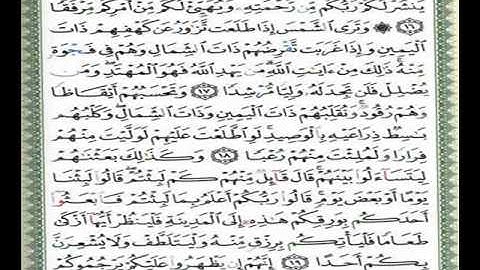 يَنشُرْ لَكُمْ رَبُّكُم مِّن رَّحْمَتِهِۦ وَيُهَيِّئْ لَكُم مِّنْ أَمْرِكُم مِّرْفَقًا
۝١٦ ۞ وَتَرَى ٱلشَّمْسَ إِذَا طَلَعَت تَّزَٰوَرُ عَن كَهْفِهِمْ ذَاتَ
ٱلْيَمِينِ وَإِذَا غَرَبَت تَّقْرِضُهُمْ ذَاتَ ٱلشِّمَالِ وَهُمْ فِى فَجْوَةٍ
مِّنْهُ ۚ ذَٰلِكَ مِنْ ءَايَٰتِ ٱللَّهِ ۗ مَن يَهْدِ ٱللَّهُ فَهُوَ ٱلْمُهْتَدِ ۖ وَمَن
يُضْلِلْ فَلَن تَجِدَ لَهُۥ وَلِيًّا مُّرْشِدًا ۝١٧ وَتَحْسَبُهُمْ أَيْقَاظًا
وَهُمْ رُقُودٌ ۚ وَنُقَلِّبُهُمْ ذَاتَ ٱلْيَمِينِ وَذَاتَ ٱلشِّمَالِ ۖ وَكَلْبُهُم
بَٰسِطٌ ذِرَاعَيْهِ بِٱلْوَصِيدِ ۚ لَوِ ٱطَّلَعْتَ عَلَيْهِمْ لَوَلَّيْتَ مِنْهُمْ
فِرَارًا وَلَمُلِئْتَ مِنْهُمْ رُعْبًا ۝١٨ وَكَذَٰلِكَ بَعَثْنَٰهُمْ
لِيَتَسَآءَلُوا۟ بَيْنَهُمْ ۚ قَالَ قَآئِلٌ مِّنْهُمْ كَمْ لَبِثْتُمْ ۖ قَالُوا۟ لَبِثْنَا
يَوْمًا أَوْ بَعْضَ يَوْمٍ ۚ قَالُوا۟ رَبُّكُمْ أَعْلَمُ بِمَا لَبِثْتُمْ فَٱبْعَثُوٓا۟
أَحَدَكُم بِوَرِقِكُمْ هَٰذِهِۦٓ إِلَى ٱلْمَدِينَةِ فَلْيَنظُرْ أَيُّهَآ أَزْكَىٰ
طَعَامًا فَلْيَأْتِكُم بِرِزْقٍ مِّنْهُ وَلْيَتَلَطَّفْ وَلَا يُشْعِرَنَّ
بِكُمْ أَحَدًا ۝١٩ إِنَّهُمْ إِن يَظْهَرُوا۟ عَلَيْكُمْ يَرْجُمُوكُمْ